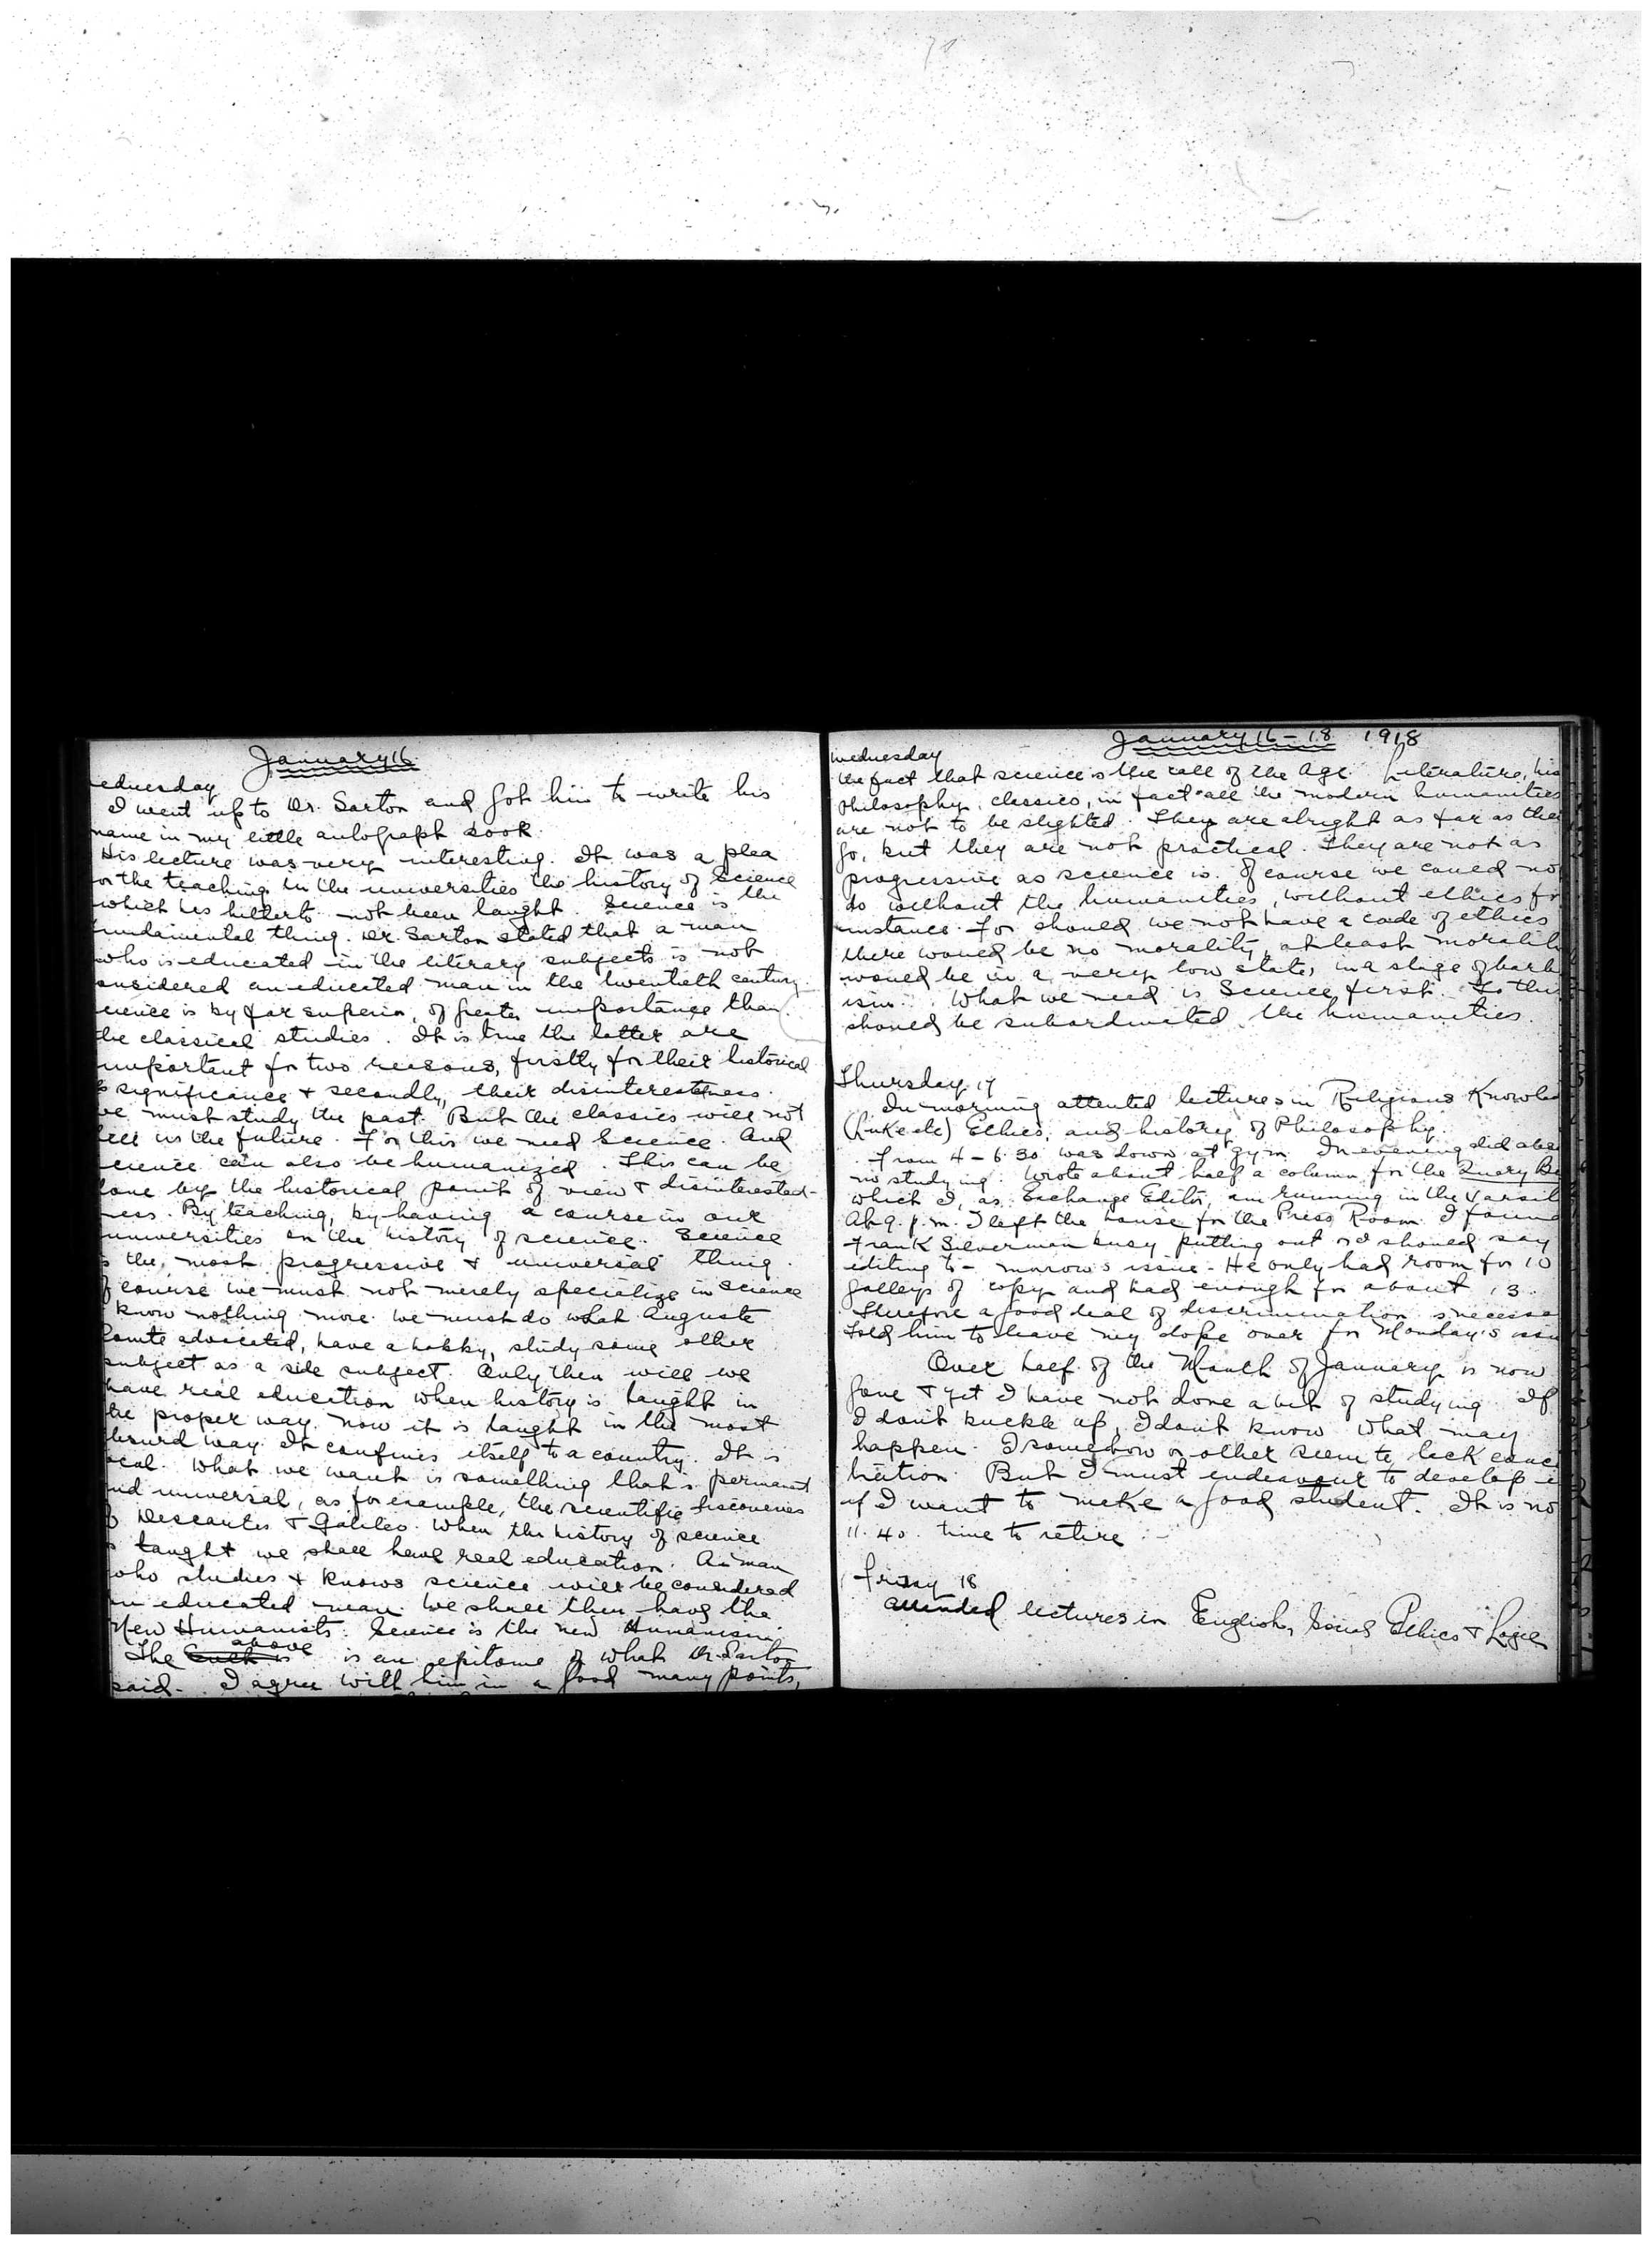 January 16
ednesday
I went up to Dr. Sarton and got him to write his
name in my little autograph book.
His lecture was very interesting. It was a plea
or the teaching in the universities the history of Science
which has hitherto not been taught. Science is the
undamental thing. Dr. Sarton stated that a man
who is educated in the literary subjects is not
onsidered an educated man in the twentieth century.
cience is by far superior, of greater importance than
the classical studies. It is true the latter are
important for two reasons, firstly for their historical
significance & secondly, their disinterestness.
we must study the past. But the classics will not
tell us the future. For this we need Science. And
cience can also be humanized. This can be
done by the historical point of view & disinterested-
ness. By teaching, by having a course in our
universities on the history of science. Science
is the most progressive & universal thing.
Of course we must not merely specialize in Science
& know nothing more. We must do what Auguste
Comte advocated, have a hobby, study some other
subject as a side subject. Only then will we
have real education when history is taught in
the proper way. Now it is taught in the most
absurd way. It confines itself to a country. It is
local. What we want is something that's permanent
and universal, as for example, the scientific discoveries
of Descartes & Galileo. When the history of science
is taught we shall have real education. A man
who studies & knows science will be considered
an educated man. We shall then have the
New Humanists. Science is the new Humanism.
above
The is an epitome of what Dr. Sarton
said. I agree with him in a good many points,
January 16 - 18 1918
Wednesday
the fact that science is the call of the Age. Literature, his
Philosophy, classics, in fact all the modern humanities
are not to be slighted. They are alright as far as they
go, but they are not practical. They are not as
progressive as science is. Of course we could no
do without the humanities, without ethics for
instance. For should we not have a code of ethics
there would be no morality, at least moralit
would be in a very low state, in a stage of barb
ism. What we need is Science first. To this
should be subordinated the humanities.
Thursday 17
In morning attented lectures in Religious Knowled
(Luke etc) Ethics, and history of Philosophy.
From 4 - 6.30 was down at gym. In evening did abso
no studying. Wrote about half a column for the Query B
which I, as Exchange Editor, am running in the Varsit
At 9. p.m. I left the house for the Press Room. I foun
Frank Silverman busy putting out or I should say
editing to-morrow's issue. He only had room for 10
galleys of copy and had enough for about 13.
Therefore a good deal of discrimination is necessa
Told him to leave my dope over for Monday's issu
Over half of the Month of January is now
gone & yet I have not done a bit of studying. If
I don't buckle up, I don't know what may
happen. I somehow or other seem to lack conc
tration. But I must endeavour to develop i
if I want to make a good student. It is no
11.40. time to retire.
Friday 18
attended lectures in English, Social Ethics & Logic